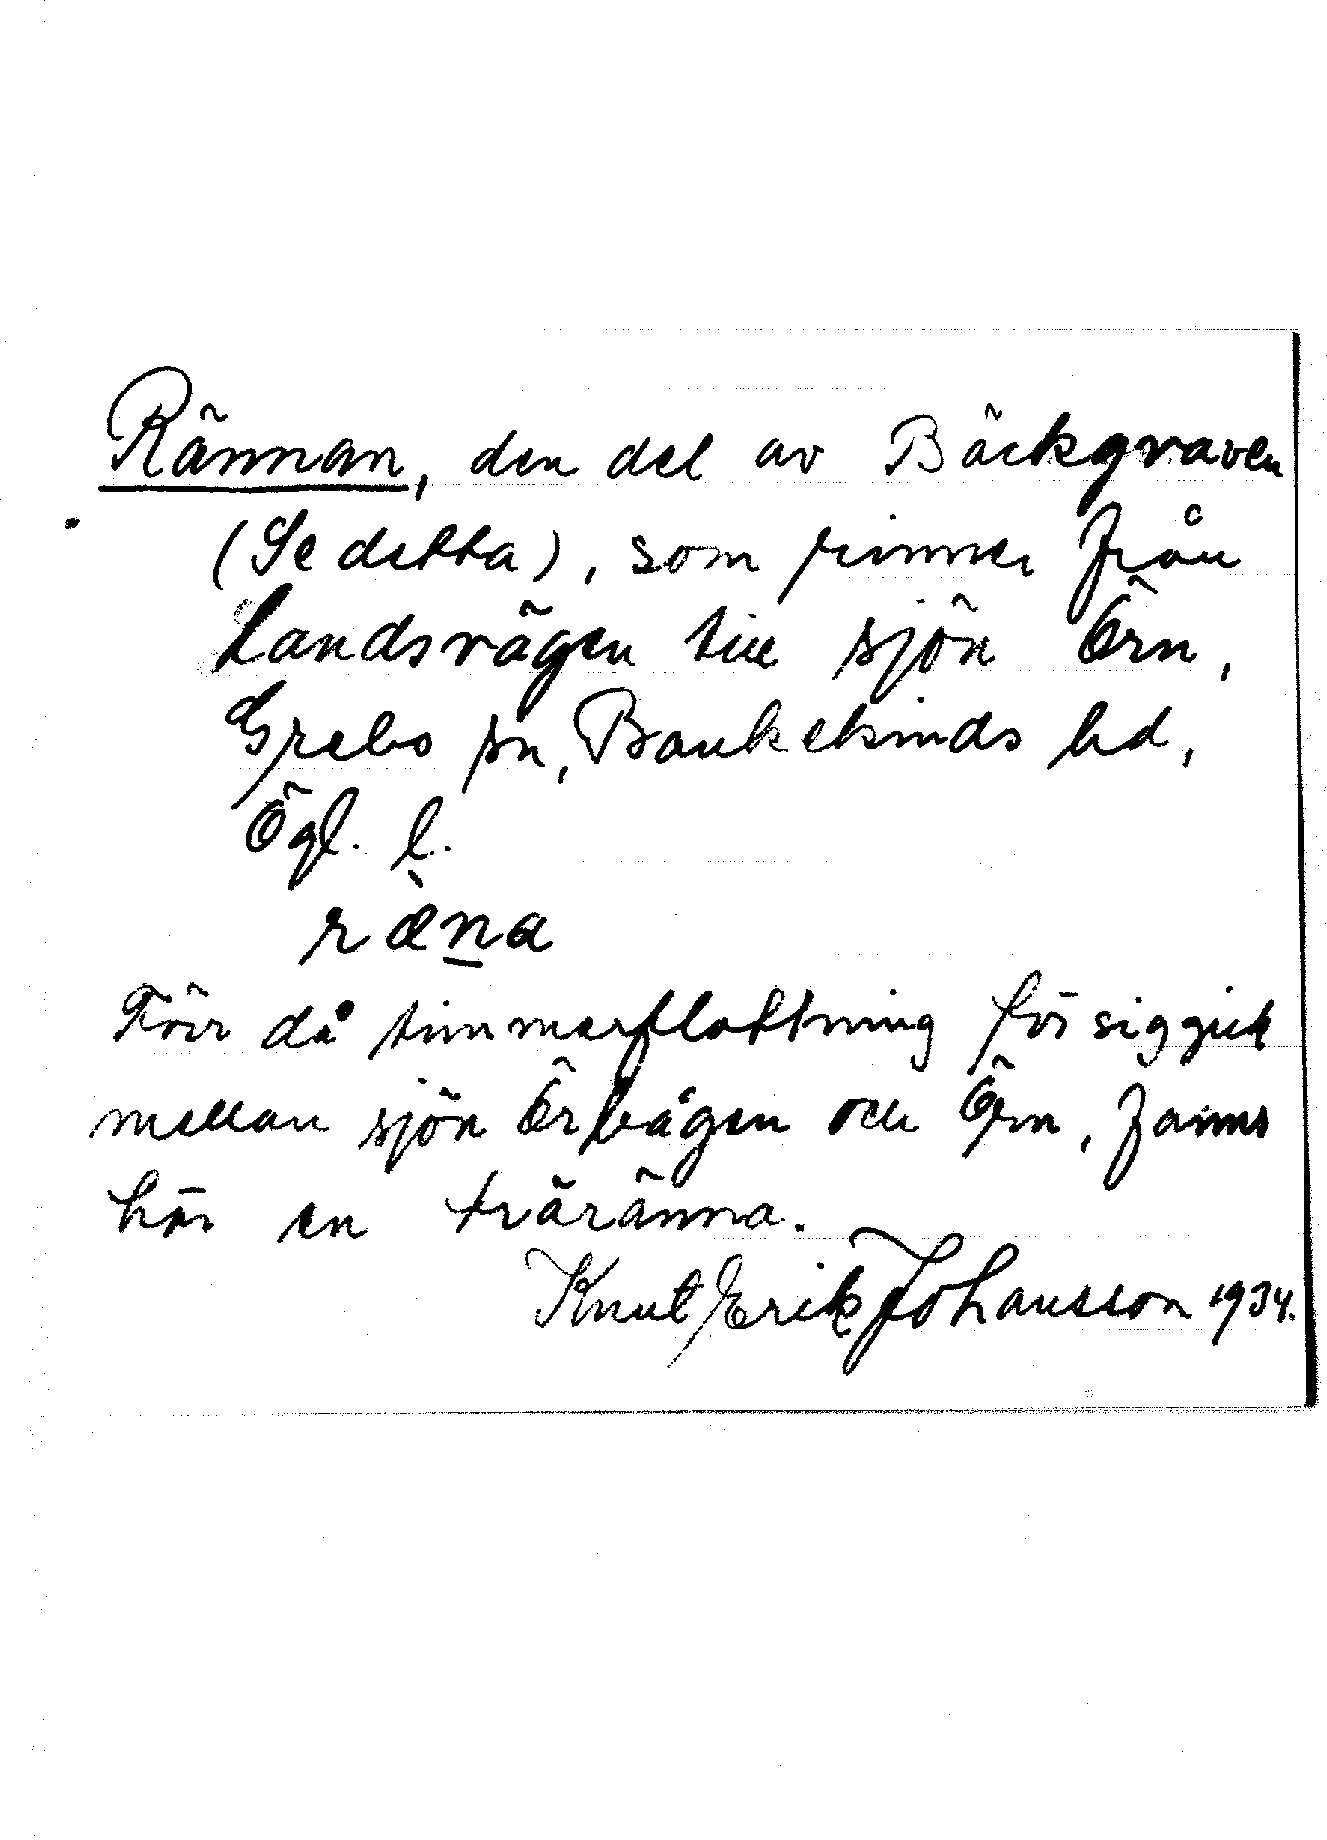 Rännan, den del av Bäckgraven
(Se detta), som rinner från
landsvägen till sjön Örn,
Grebo sn, Bankekinds hd,
Ögl. l.
ræ̀n̲a
Förr då timmerflottning försiggick
mellan sjön Örbågen och Örn, fanns
här en träränna.
Knut Erik Johansson 1934.